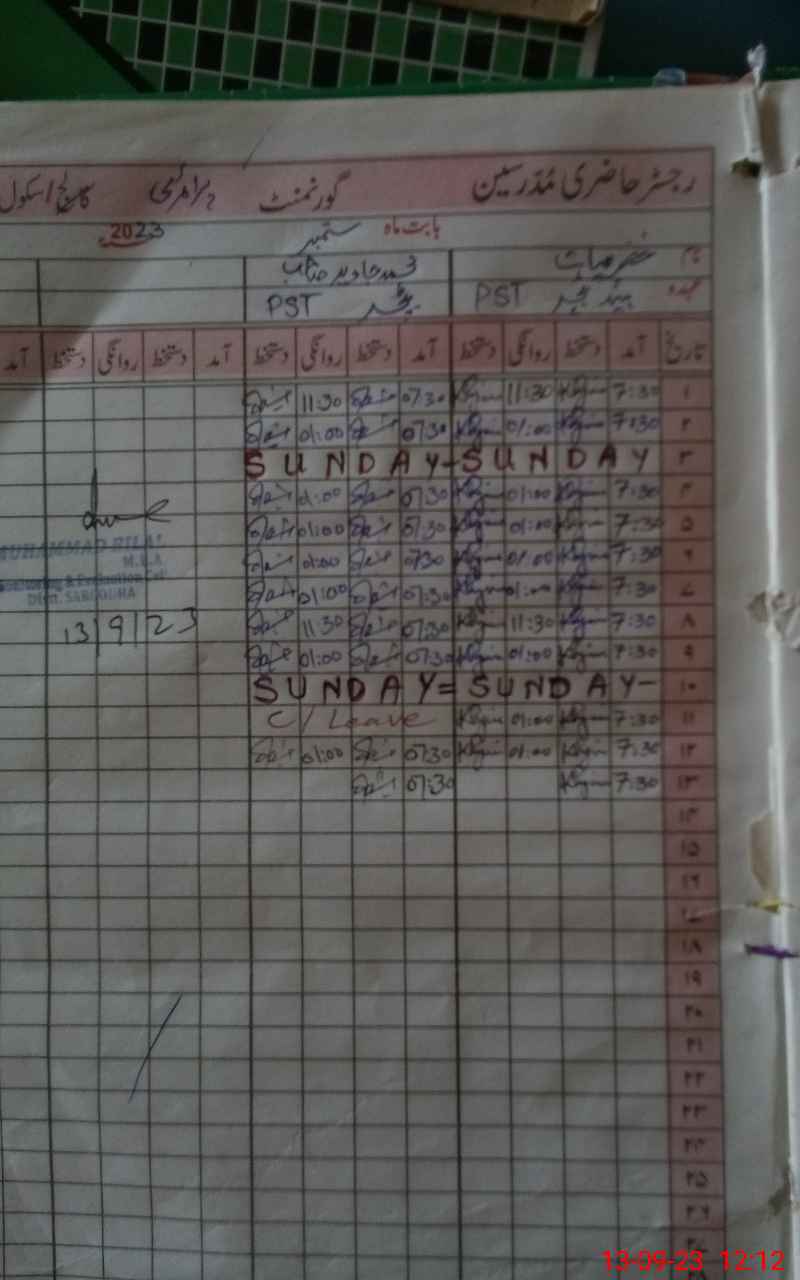 رجسٹر حاضری مدرسین گورنمنٹ پرائمری کالج/سکول
بابت ماہ ستمبر 2023
نام خضر حیات محمد جاوید
عہدہ ہیڈ ٹیچر PST ٹیچر PST
تاریخ آمد دستخط روانگی دستخط آمد دستخط روانگی دستخط آمد دستخط روانگی دستخط آمد
۱ 7:30 11:30 07:30 11:30
۲ 7:30 01:00 07:30 01:00
۳ SUNDAY-SUNDAY
۴ 7:30 01:00 07:30 01:00
۵ 7:30 01:00 07:30 01:00
۶ 7:30 01:00 0730 01:00
۷ 7:30 01:00 07:30 01:00
۸ 7:30 11:30 07:30 11:30
۹ 7:30 01:00 07:30 01:00
۱۰ SUNDAY= SUNDAY-
۱۱ 7:30 01:00 C/Leave
۱۲ 7:30 01:00 07:30 01:00
۱۳ 7:30 07:30
۱۴
۱۵
۱۶
۱۷
۱۸
۱۹
۲۰
۲۱
۲۲
۲۳
۲۴
۲۵
۲۶
۲۷
MUHAMMAD BILAL
M.E.A
Monitoring & Evaluation Cell
Distt. SARGODHA
13/9/23
13-09-23 12:12